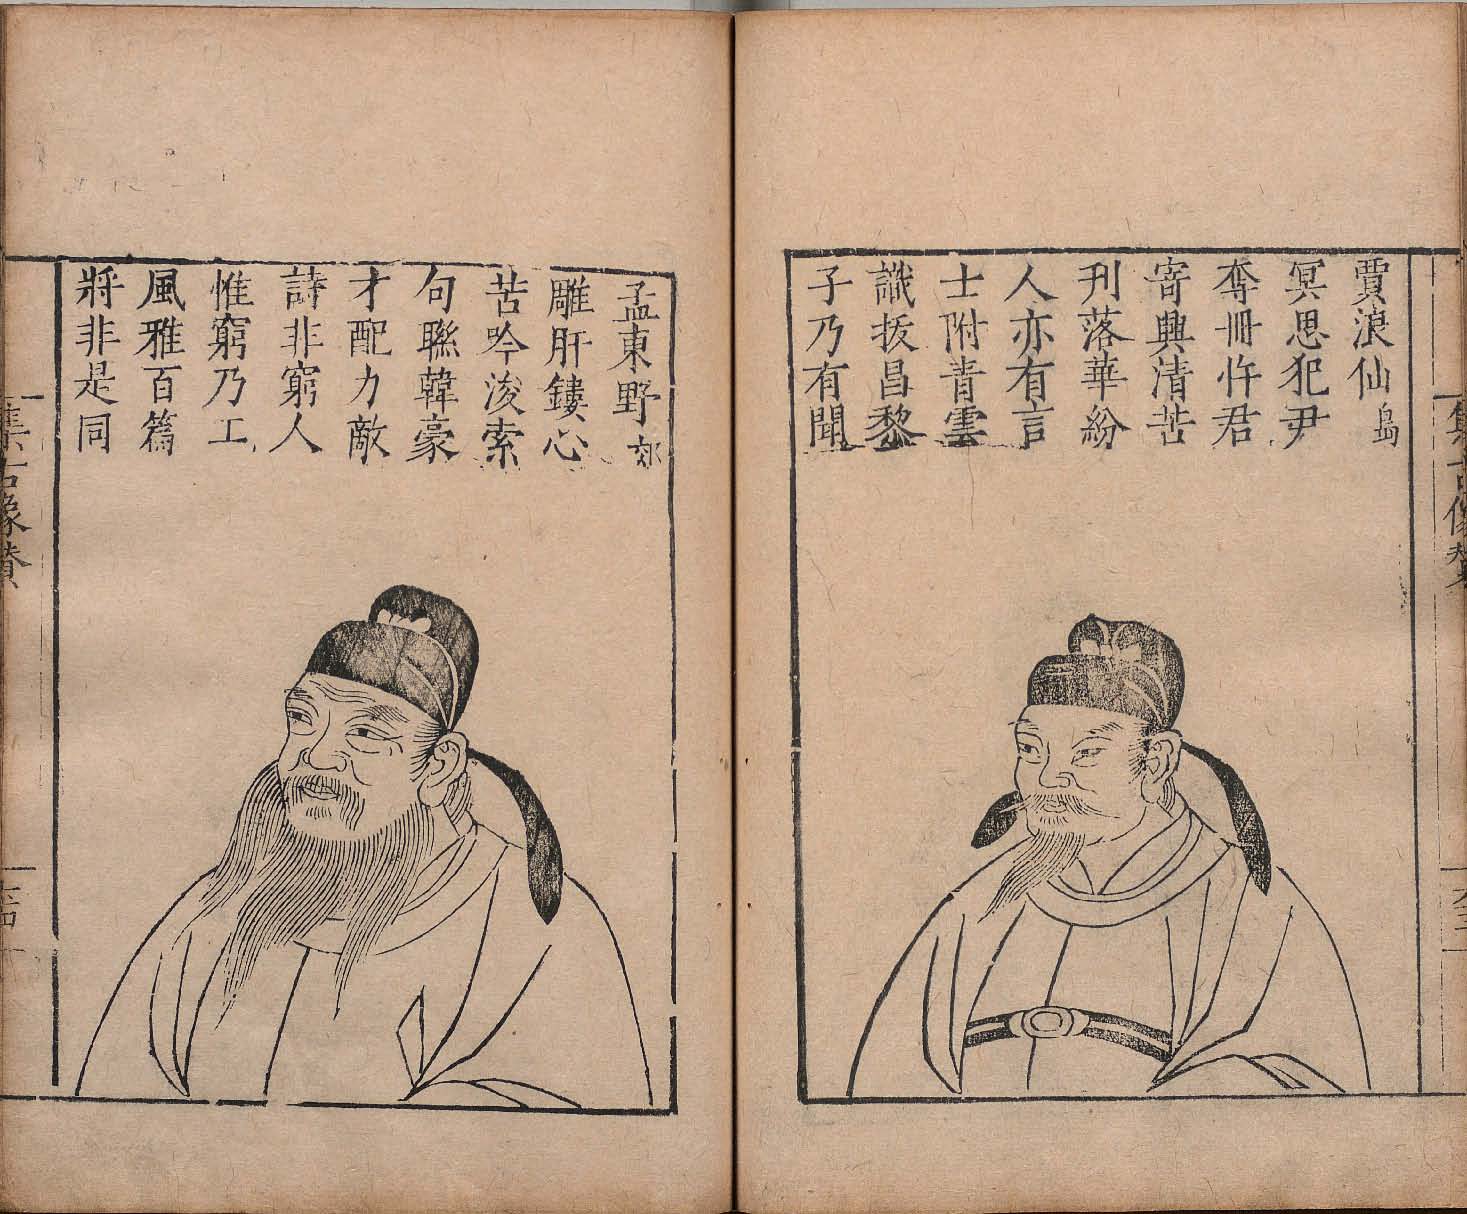 賈浪仙島
冥思犯尹
奪冊忤君
寄興清苦
刋落華紛
人亦有言
士附青雲
識抜昌黎
子乃有聞
孟東野郊
雕肝鏤心
苦吟浚索
句聮韓豪
才配力敵
詩非窮人
惟窮乃工
風雅百篇
將非是同
集古像贊